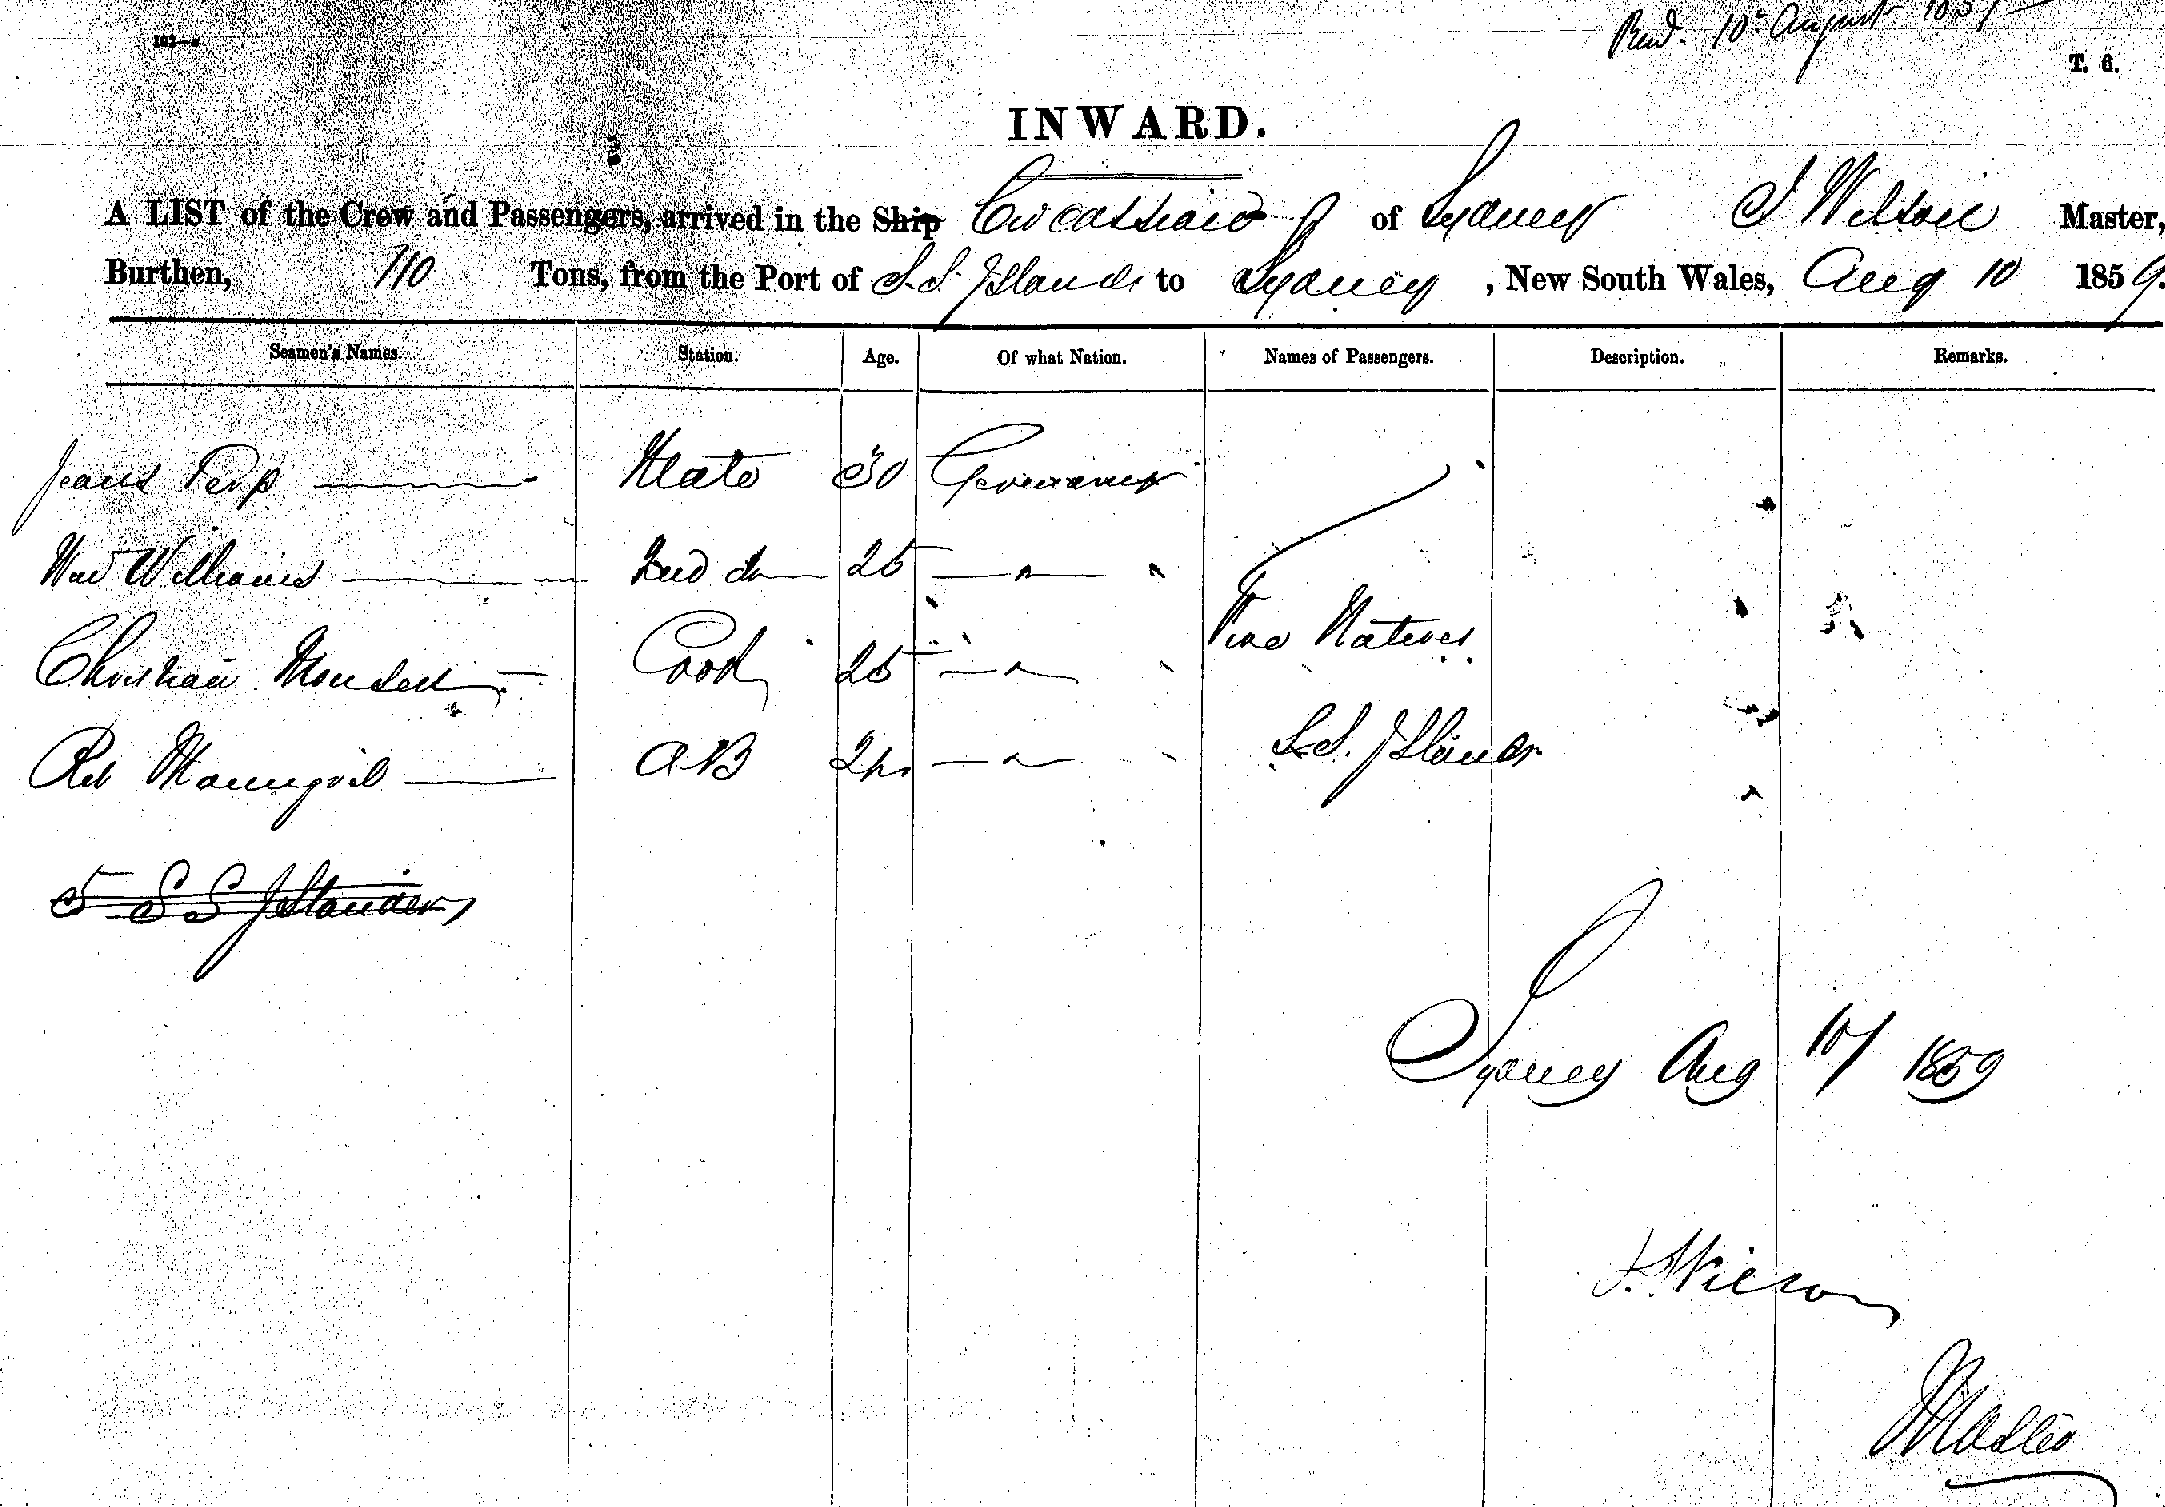 Recd. 10th August 1859
T. 6.
INWARD.
A LIST of the Crew and Passengers, arrived in the Ship Circassian of Sydney J Wilson Master,
Burthen, 110 Tons, from the Port of S.S. Islands to Sydney, New South Wales, Aug 10 1859.
Seamen's Names. Station. Age. Of what Nation. Names of Passengers. Description. Remarks.
Mate 30 Germany
Wm Williams 2nd do 25 — " — "
Christian Cook 25 — " —
Five Natives
Rob A.B 24 — " —
S.S. Islands
5 S S Islanders
Sydney Aug 10/ 1859
J. Wilson
Master